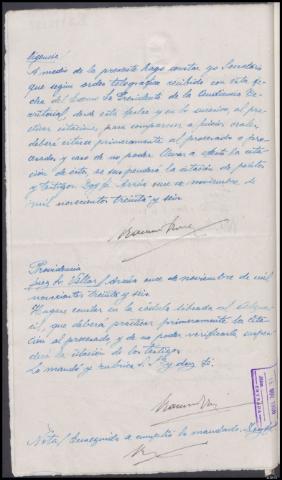 Diligencia/
A medio de la presente hago constar yo Secretario
que según orden telegráfica recibida con esta fe-
cha del Excmo Sr Presidente de la Audiencia Te-
rritorial, desde esta fecha y en lo sucesivo al prac-
ticar citaciones para comparecer a juicios orales,
deberá citarse primeramente al procesado o pro-
cesados y caso de no poder llevar a efecto la cita-
ción de estos, se suspenderá la citación de peritos
y testigos. Doy fe. Arzúa once de noviembre de
mil novecientos treinta y seis

Providencia
Juez Sr Vellar/ Arzúa once de noviembre de mil
novecientos treinta y seis
Hágase constar en la cédula librada al Algua-
cil, que deberá practicar primeramente la cita-
ción al procesado, y de no poder verificarla suspen-
derá la citación de los testigos.
Lo mandó y rubrica S. Sª doy fe.

Nota/ Enseguida se cumple lo mandado. Doy fe